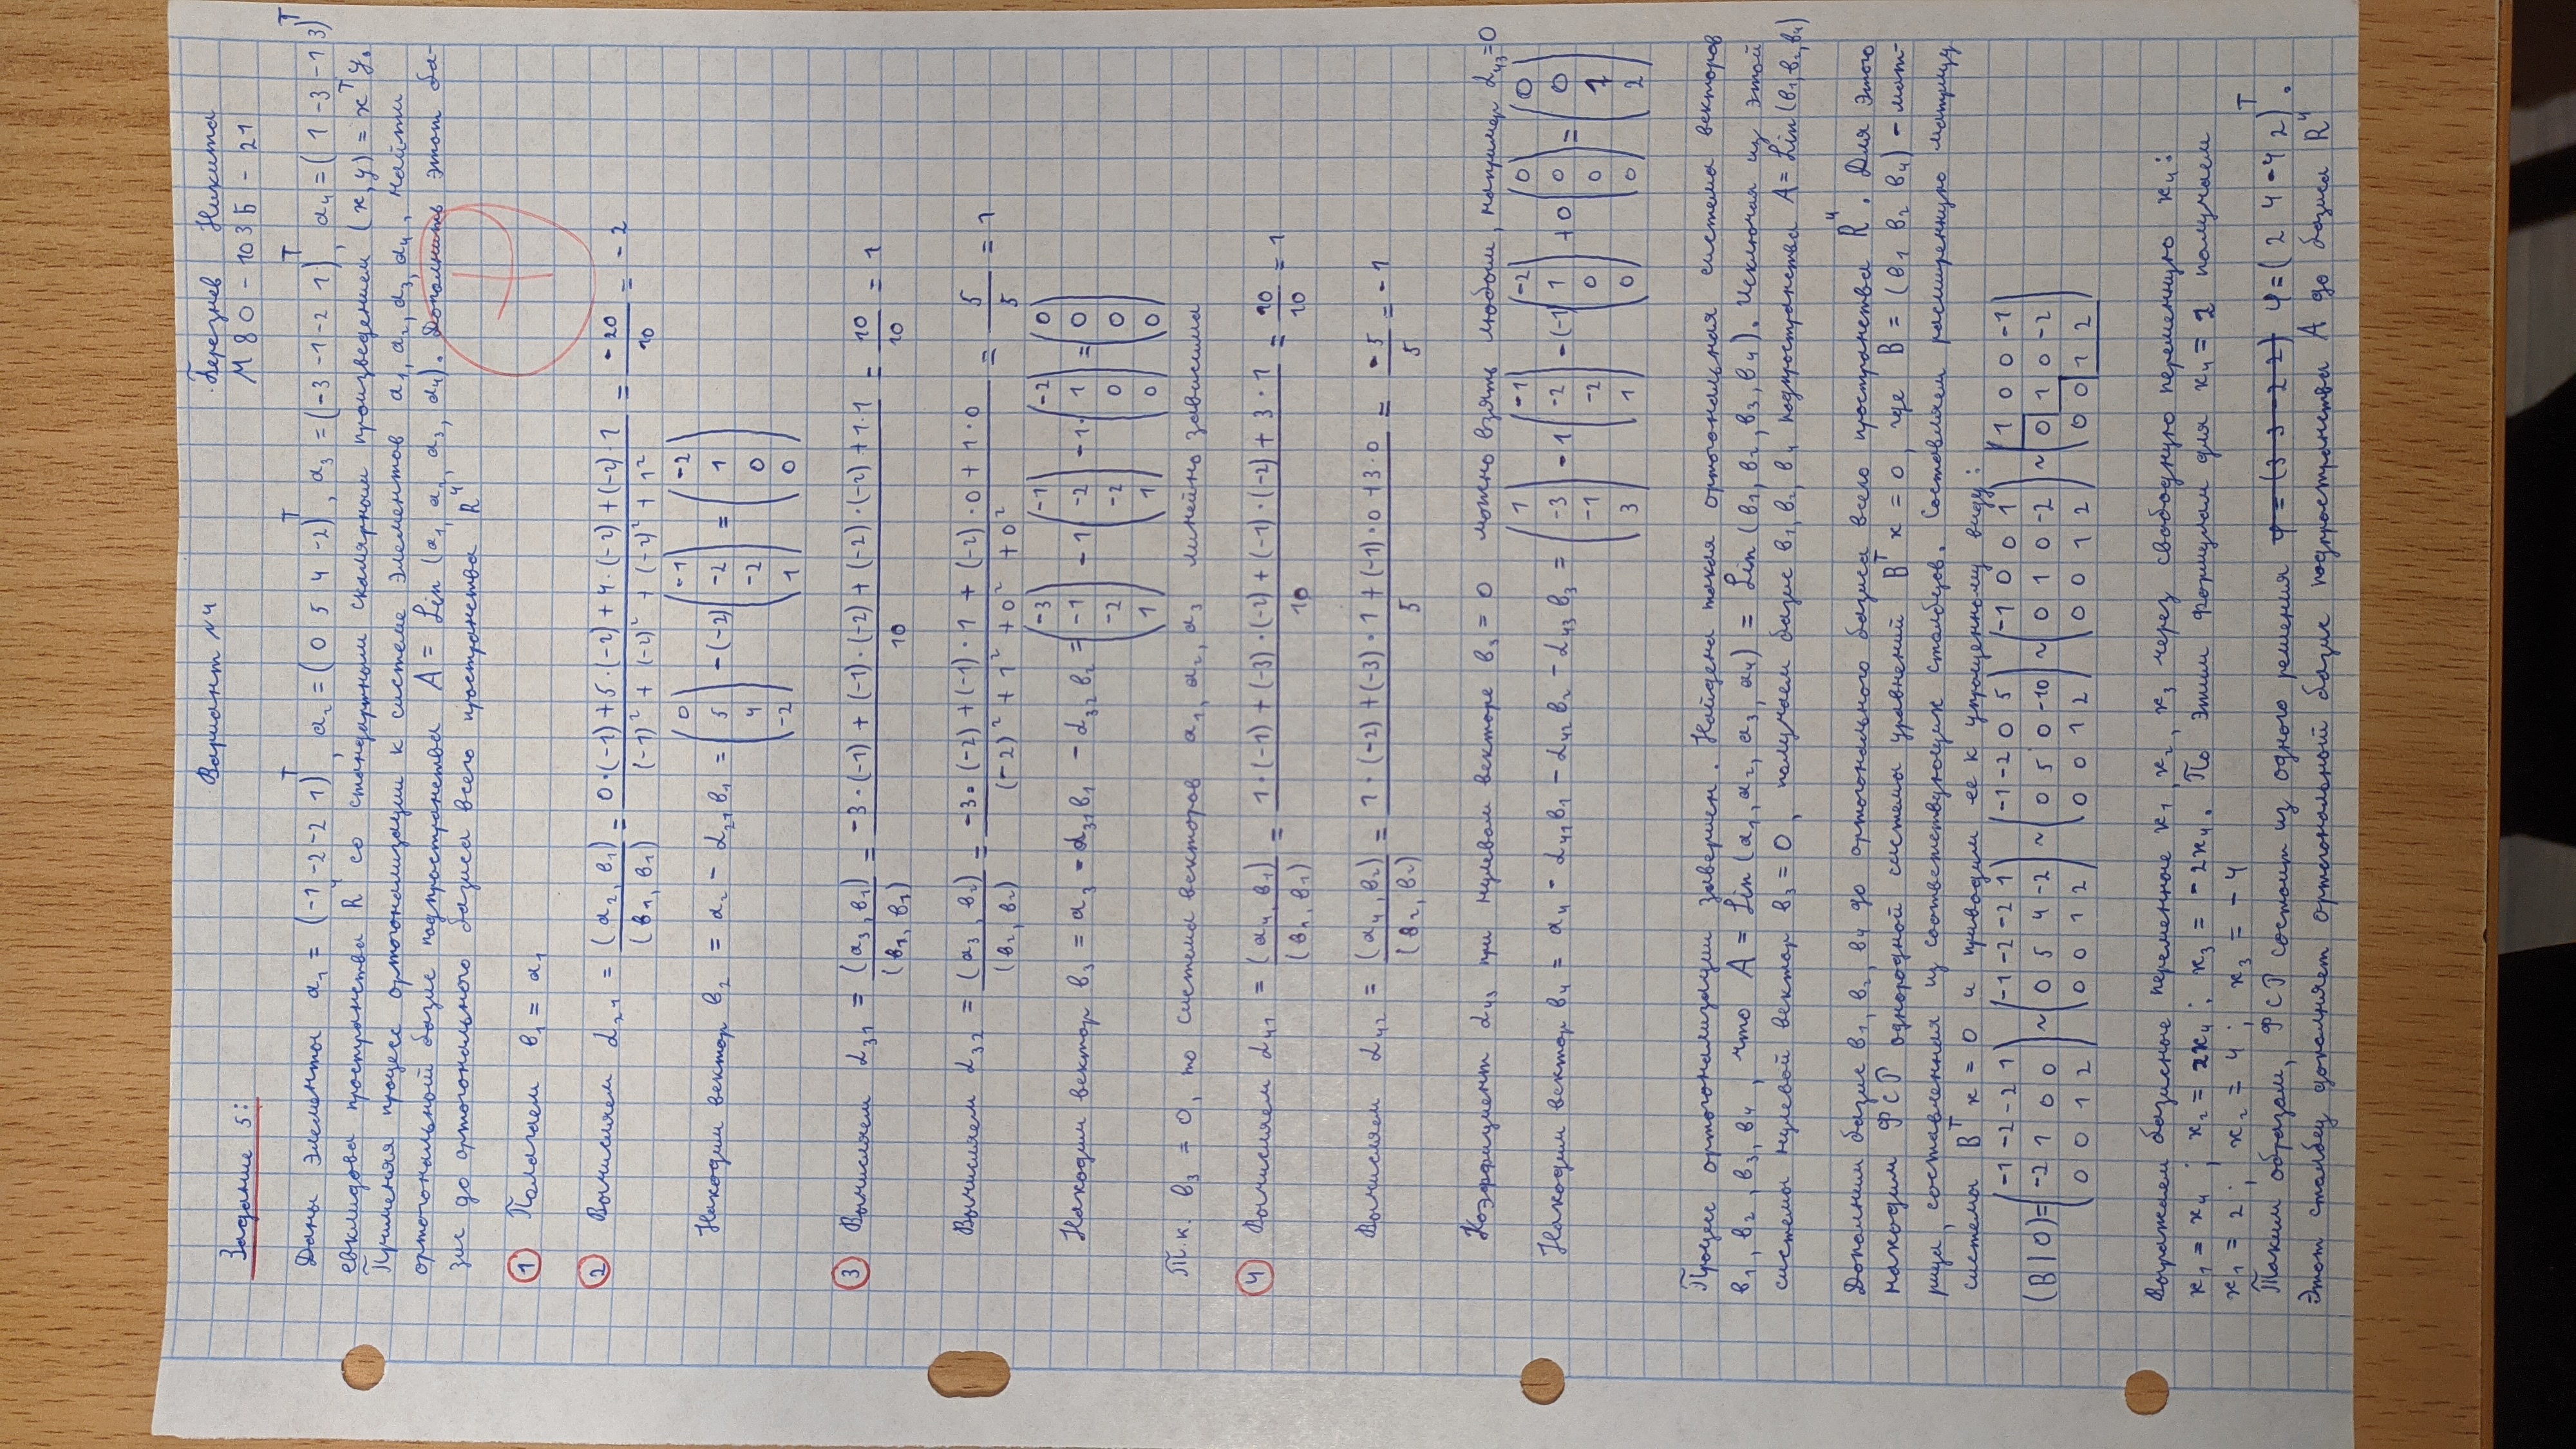 Вариант №4
Березнев Никита
Задание 5:
М80-103Б-21
Даны элементы a₁ = (-1 -2 -2 1)ᵀ, a₂ = (0 5 4 -2)ᵀ, a₃ = (-3 -1 -2 1)ᵀ, a₄ = (1 -3 -1 3)ᵀ
евклидова пространства R⁴ со стандартным скалярным произведением (x, y) = xᵀy.
Применяя процесс ортогонализации к системе элементов a₁, a₂, a₃, a₄, найти
ортогональный базис подпространства A = Lin (a₁, a₂, a₃, a₄). Дополнить этот ба-
зис до ортогонального базиса всего пространства R⁴
① Полагаем b₁ = a₁
② Вычисляем α₂₁ = (a₂, b₁)/(b₁, b₁) = (0·(-1) + 5·(-2) + 4·(-2) + (-2)·1)/((-1)² + (-2)² + (-2)² + 1²) = -20/10 = -2
Находим вектор b₂ = a₂ - α₂₁b₁ = (0 5 4 -2) - (-2)(-1 -2 -2 1) = (-2 1 0 0)
③ Вычисляем α₃₁ = (a₃, b₁)/(b₁, b₁) = (-3·(-1) + (-1)·(-2) + (-2)·(-2) + 1·1)/10 = 10/10 = 1
Вычисляем α₃₂ = (a₃, b₂)/(b₂, b₂) = (-3·(-2) + (-1)·1 + (-2)·0 + 1·0)/((-2)² + 1² + 0² + 0²) = 5/5 = 1
Находим вектор b₃ = a₃ - α₃₁b₁ - α₃₂b₂ = (-3 -1 -2 1) - 1(-1 -2 -2 1) - 1·(-2 1 0 0) = (0 0 0 0)
Т.к. b₃ = 0, то система векторов a₁, a₂, a₃ линейно зависима
④ Вычисляем α₄₁ = (a₄, b₁)/(b₁, b₁) = (1·(-1) + (-3)·(-2) + (-1)·(-2) + 3·1)/10 = 10/10 = 1
Вычисляем α₄₂ = (a₄, b₂)/(b₂, b₂) = (1·(-2) + (-3)·1 + (-1)·0 + 3·0)/5 = -5/5 = -1
Коэффициент α₄₃ при нулевом векторе b₃ = 0 можно взять любым, например α₄₃ = 0
Находим вектор b₄ = a₄ - α₄₁b₁ - α₄₂b₂ - α₄₃b₃ = (1 -3 -1 3) - 1(-1 -2 -2 1) - (-1)(-2 1 0 0) + 0(0 0 0 0) = (0 0 1 2)
Процесс ортогонализации завершен. Найдена такая ортогональная система векторов
b₁, b₂, b₃, b₄, что A = Lin (a₁, a₂, a₃, a₄) = Lin (b₁, b₂, b₃, b₄). Исключая из этой
системы нулевой вектор b₃ = 0, получаем базис b₁, b₂, b₄ подпространства A = Lin (b₁, b₂, b₄)
Дополним базис b₁, b₂, b₄ до ортогонального базиса всего пространства R⁴. Для этого
находим ФСР однородной системы уравнений Bᵀx = 0, где B = (b₁ b₂ b₄) - мат-
рица, составленная из соответствующих столбцов. Составляем расширенную матрицу
системы Bᵀx = 0 и приводим ее к упрощенному виду:
(B | 0) = (-1 -2 -2 1; -2 1 0 0; 0 0 1 2) ~ (-1 -2 -2 1; 0 5 4 -2; 0 0 1 2) ~ (-1 -2 0 5; 0 5 0 -10; 0 0 1 2) ~ (-1 0 0 1; 0 1 0 -2; 0 0 1 2) ~ (1 0 0 -1; 0 1 0 -2; 0 0 1 2)
Выражаем базисные переменные x₁, x₂, x₃ через свободную переменную x₄:
x₁ = x₄; x₂ = 2x₄; x₃ = -2x₄. По этим формулам для x₄ = 2 получаем
x₁ = 2; x₂ = 4; x₃ = -4
Таким образом, ФСР состоит из одного решения φ = (3 3 -2 2) φ = (2 4 -4 2)ᵀ.
Этот столбец дополняет ортогональный базис подпространства A до базиса R⁴